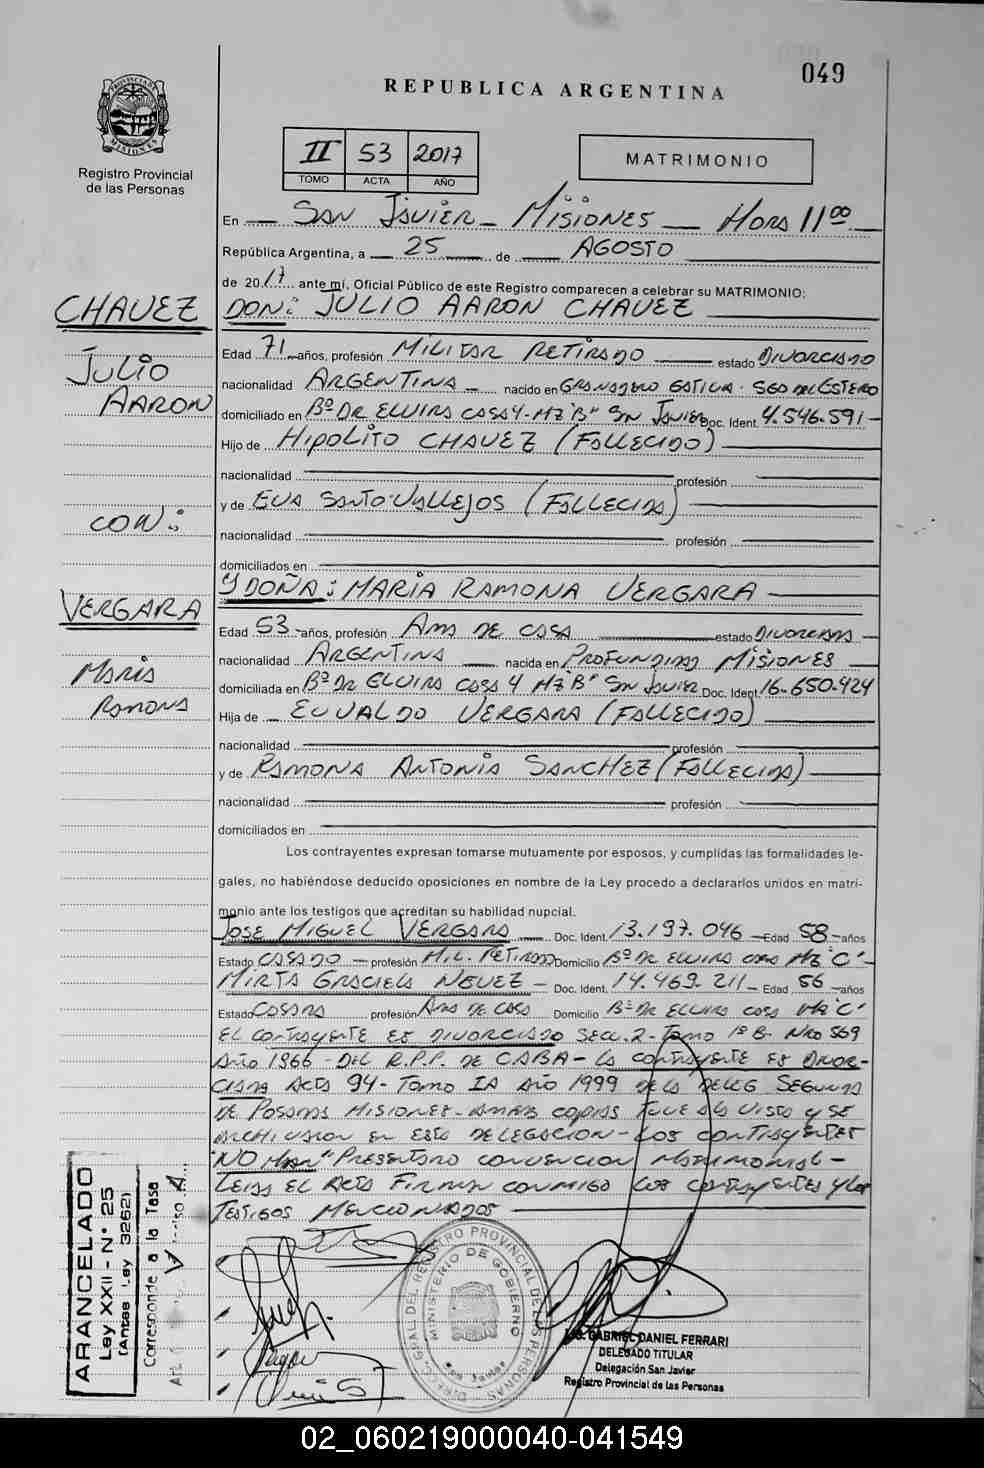 049
REPUBLICA ARGENTINA
PROVINCIA DE MISIONES
Registro Provincial
de las Personas
II 53 2017
TOMO ACTA AÑO
MATRIMONIO
En SAN JAVIER - MISIONES HORA 11 00
República Argentina, a 25 de AGOSTO
de 2017 ante mí, Oficial Público de este Registro comparecen a celebrar su MATRIMONIO:
CHAVEZ
JULIO
AARON
CON:
VERGARA
MARIA
RAMONA
DON: JULIO AARON CHAVEZ
Edad 71 años, profesión MILITAR RETIRADO estado DIVORCIADO
nacionalidad ARGENTINA nacido en GRANADERO GATICA - SGO DEL ESTERO
domiciliado en Bº DR ELVIRA CASA 4 - MZ "B" SN JAVIER Doc. Ident. 4.546.591
Hijo de HIPOLITO CHAVEZ (FALLECIDO)
nacionalidad profesión
y de EVA SANTO VALLEJOS (FALLECIDA)
nacionalidad profesión
domiciliados en
Y DOÑA: MARIA RAMONA VERGARA
Edad 53 años, profesión AMA DE CASA estado DIVORCIADA
nacionalidad ARGENTINA nacida en PROFUNDIDAD MISIONES
domiciliada en Bº DR ELVIRA CASA 4 MZ "B" SN JAVIER Doc. Ident. 16.650.424
Hija de EUVALDO VERGARA (FALLECIDO)
nacionalidad profesión
y de RAMONA ANTONIA SANCHEZ (FALLECIDA)
nacionalidad profesión
domiciliados en
Los contrayentes expresan tomarse mutuamente por esposos, y cumplidas las formalidades le-
gales, no habiéndose deducido oposiciones en nombre de la Ley procedo a declararlos unidos en matri-
monio ante los testigos que acreditan su habilidad nupcial.
JOSE MIGUEL VERGARA Doc. Ident. 13.197.046 Edad 58 años
Estado CASADO profesión MIL. RETIRADO Domicilio Bº DR ELVIRA CASA MZ "C"
MIRTA GRACIELA Doc. Ident. 14.469.211 Edad 56 años
Estado CASADA profesión AMA DE CASA Domicilio Bº DR ELVIRA CASA MZ "C"
EL CONTRAYENTE ES DIVORCIADO SECC. 2 - TOMO 1º B - NRO 569
AÑO 1966 - DEL R.P.P. DE CABA - LA CONTRAYENTE ES DIVOR-
CIADA ACTA 94 - TOMO IA AÑO 1999 DE LA DELEG SEGUNDA
DE POSADAS MISIONES - AMBAS COPIAS TUVE A LA VISTA Y SE
ARCHIVARON EN ESTA DELEGACION - LOS CONTRAYENTES
"NO HAN" PRESENTADO CONVENCION MATRIMONIAL -
LEIDA EL ACTA FIRMAN CONMIGO LOS CONTRAYENTES Y LOS
TESTIGOS MENCIONADOS
ARANCELADO
Ley XXII - N° 25
(Antes Ley 3262)
Corresponde a la Tasa
DIRECC. GRAL. DEL REGISTRO PROVINCIAL DE LAS PERSONAS
MINISTERIO DE GOBIERNO
San Javier
GABRIEL DANIEL FERRARI
DELEGADO TITULAR
Delegación San Javier
Registro Provincial de las Personas
02_060219000040-041549